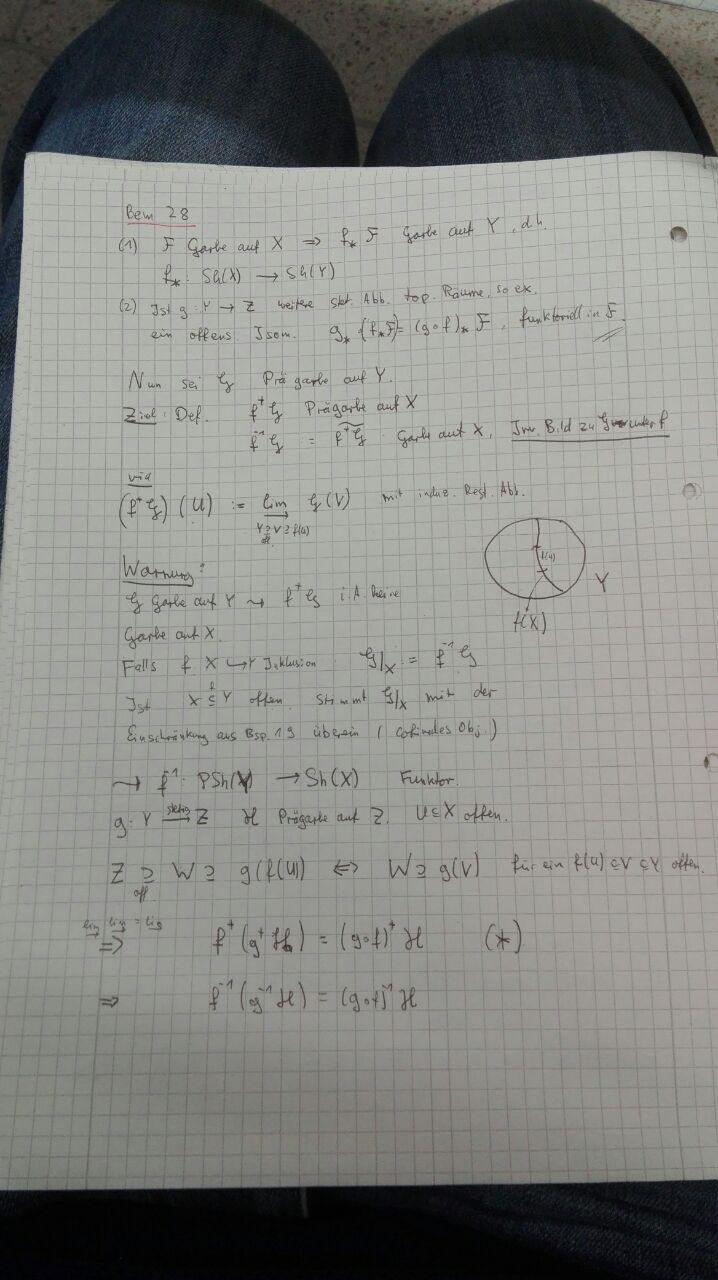 Bem 28
(1) F Garbe auf X ⇒ f_* F Garbe auf Y, d.h.
f_* : Sh(X) → Sh(Y)
(2) Ist g: Y → Z weitere stet. Abb. top. Räume, so ex.
ein offens. Isom. g_* (f_* F) = (g∘f)_* F, funktoriell in F.
Nun sei G Prägarbe auf Y.
Ziel: Def. f^+ G Prägarbe auf X
f^{-1} G = \widetilde{f^+ G} Garbe auf X, Inv. Bild zu G unter f
via
(f^+ G)(U) := \varinjlim_{Y ⊇ V ⊇ f(U), off.} G(V) mit induz. Rest. Abb.
f(U)
Y
f(X)
Warnung:
G Garbe auf Y ⇝ f^+ G i.A. keine
Garbe auf X.
Falls f: X ↪ Y Inklusion: G|_X := f^{-1} G
Ist X \overset{f}{⊆} Y offen, stimmt G|_X mit der
Einschränkung aus Bsp. 19 überein (cofinales Obj.)
→ f^{-1}: PSh(Y) → Sh(X) Funktor.
g: Y \overset{stetig}{→} Z H Prägarbe auf Z, U ⊆ X offen.
Z \underset{off.}{⊇} W ⊇ g(f(U)) ⇔ W ⊇ g(V) für ein f(U) ⊆ V ⊆ Y offen.
\varinjlim \varinjlim = \varinjlim
⇒ f^+(g^+ H) = (g∘f)^+ H (*)
⇒ f^{-1}(g^{-1} H) = (g∘f)^{-1} H